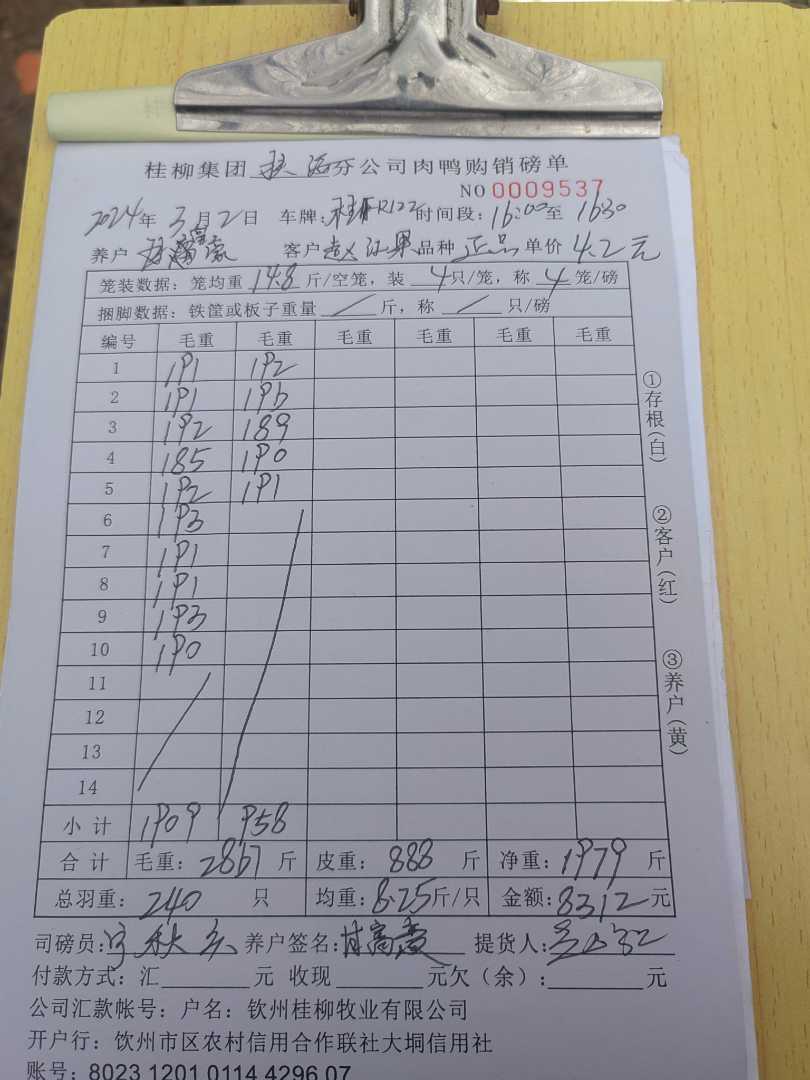 桂柳集团 分公司肉鸭购销磅单
NO 0009537
2024年3月2日 车牌: 时间段:16:00至1630
养户 客户 赵江果 品种 正品 单价 4.2元
笼装数据: 笼均重 14.8 斤/空笼, 装 4只/笼, 称 4 笼/磅
捆脚数据: 铁筐或板子重量 / 斤, 称 / 只/磅
编号 毛重 毛重 毛重 毛重 毛重 毛重
1 191 192
2 191 196
3 192 189
4 185 190
5 192 191
6 193
7 191
8 191
9 193
10 190
11
12
13
14
小计 1909 958
合计 毛重: 2867 斤 皮重: 888 斤 净重: 1979 斤
总羽重: 240 只 均重: 8.25斤/只 金额: 8312元
司磅员: 养户签名: 提货人:
付款方式: 汇 元 收现 元欠(余): 元
公司汇款帐号: 户名: 钦州桂柳牧业有限公司
开户行: 饮州市区农村信用合作联社大垌信用社
账号: 8023 1201 0114 4296 07
①存根(白)
②客户(红)
③养户(黄)